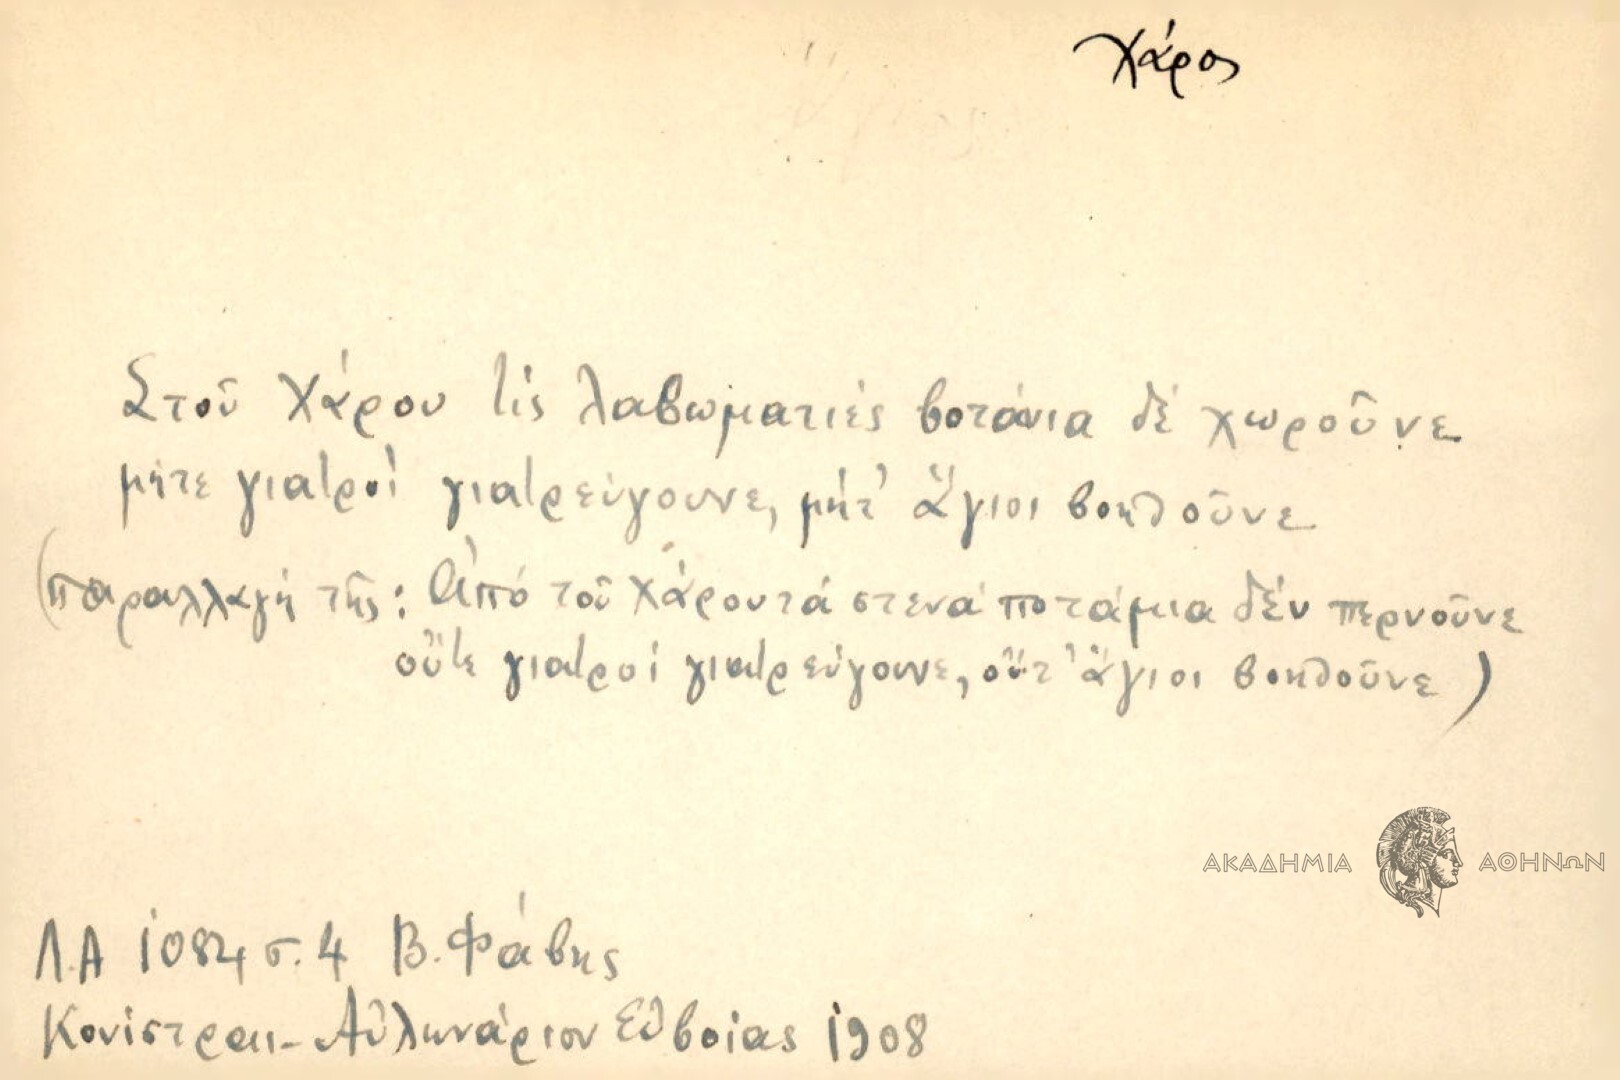 Χάρος
Στοῦ Χάρου τίς λαβωματιές βοτάνια δέ χωροῦνε
μήτε γιατροί γιατρεύγουνε, μήτ' ἅγιοι βοηθοῦνε
(παραλλαγή τῆς: Ἀπό τοῦ Χάρου τά στενά ποτάμια δέν περνοῦνε
οὔτε γιατροί γιατρεύγουνε, οὔτ' ἅγιοι βοηθοῦνε)
ΑΚΑΔΗΜΙΑ ΑΘΗΝΩΝ
Λ.Α 1084 σ. 4 Β. Φάβης
Κονίστραι - Αὐλωνάριον Εὐβοίας 1908